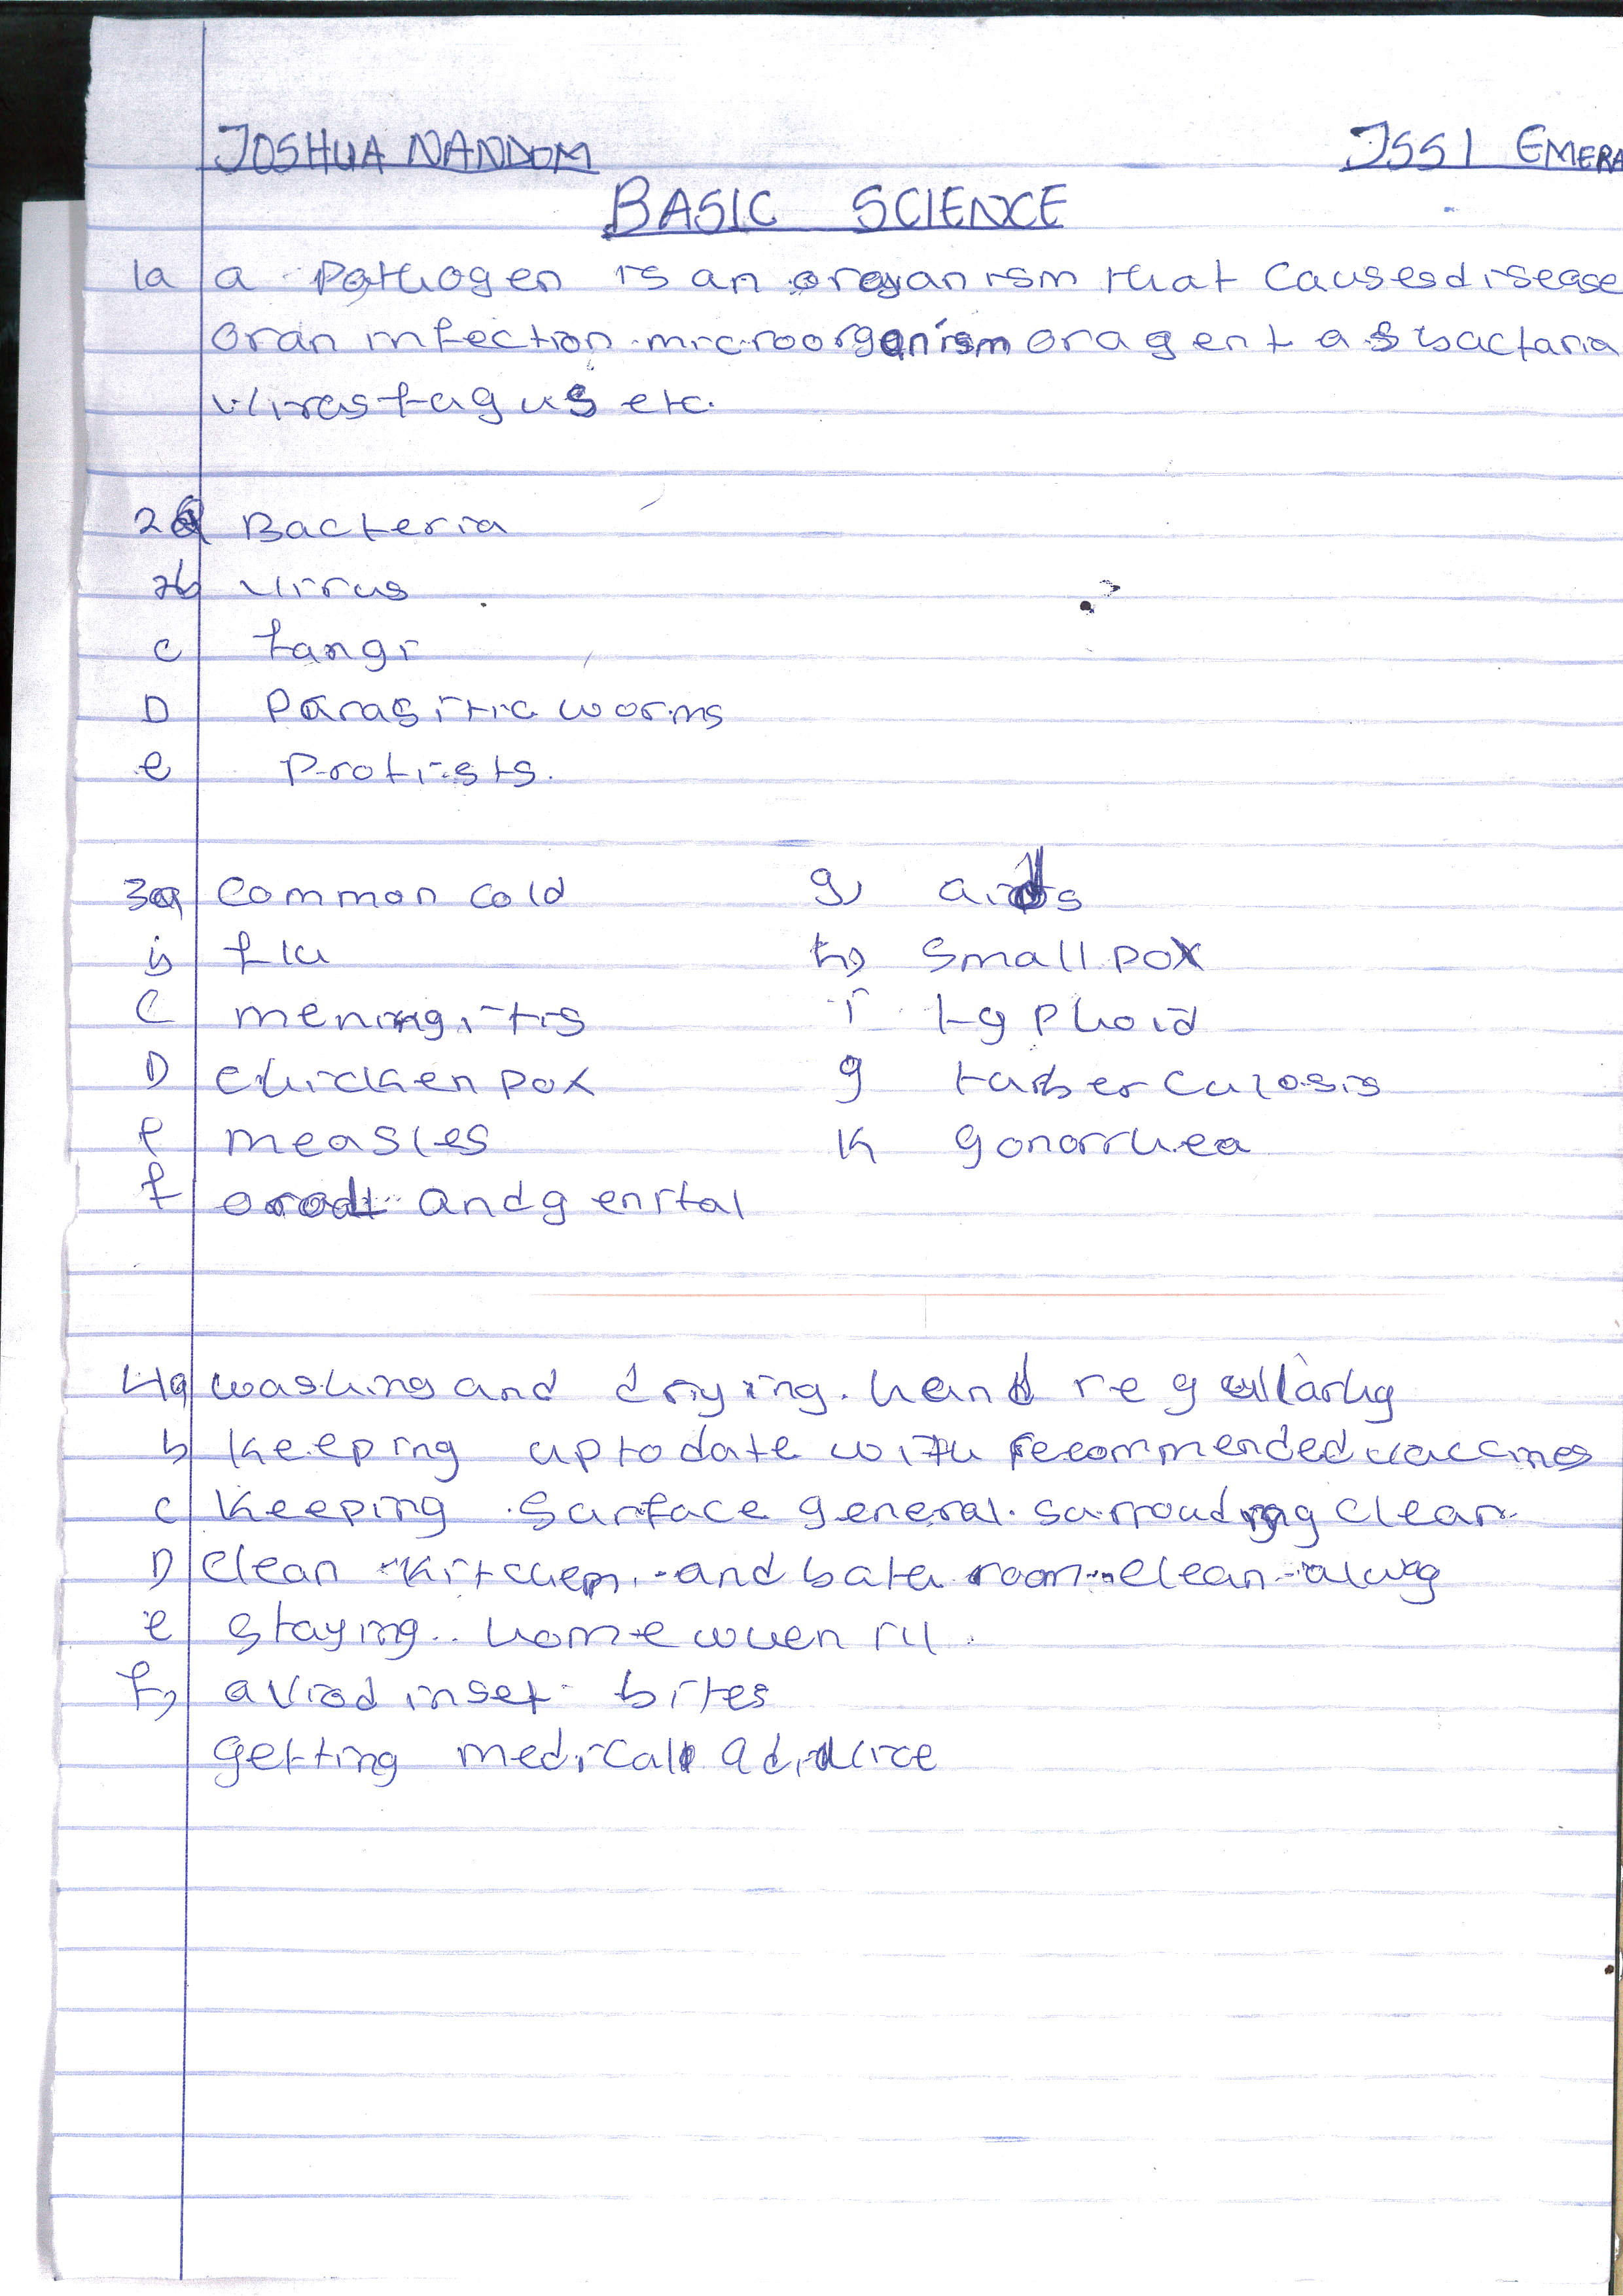 JOSHUA NANDOM JSS1 EMERA
BASIC SCIENCE
1a a Pathogen is an oroganism that Causes disease
or an infection microorganism or agent as bactaria
Virus fugus etc.
2a Bacteria
2b Virus
c fangi
D Parasitic worms
e Protists.
3a Common Cold g, aids
b flu h, Small pox
C meningitis i typhoid
D Chicken pox g tuberculosis
e measles K gonorrhea
f and genital
4a washing and drying hand regullarly
b Keeping up to date with recommended vaccines
c Keeping Surface general surrouding clean
D Clean Kitchen and bath room clean
e Staying home when ill.
f, aviod inset bites
getting medical advice